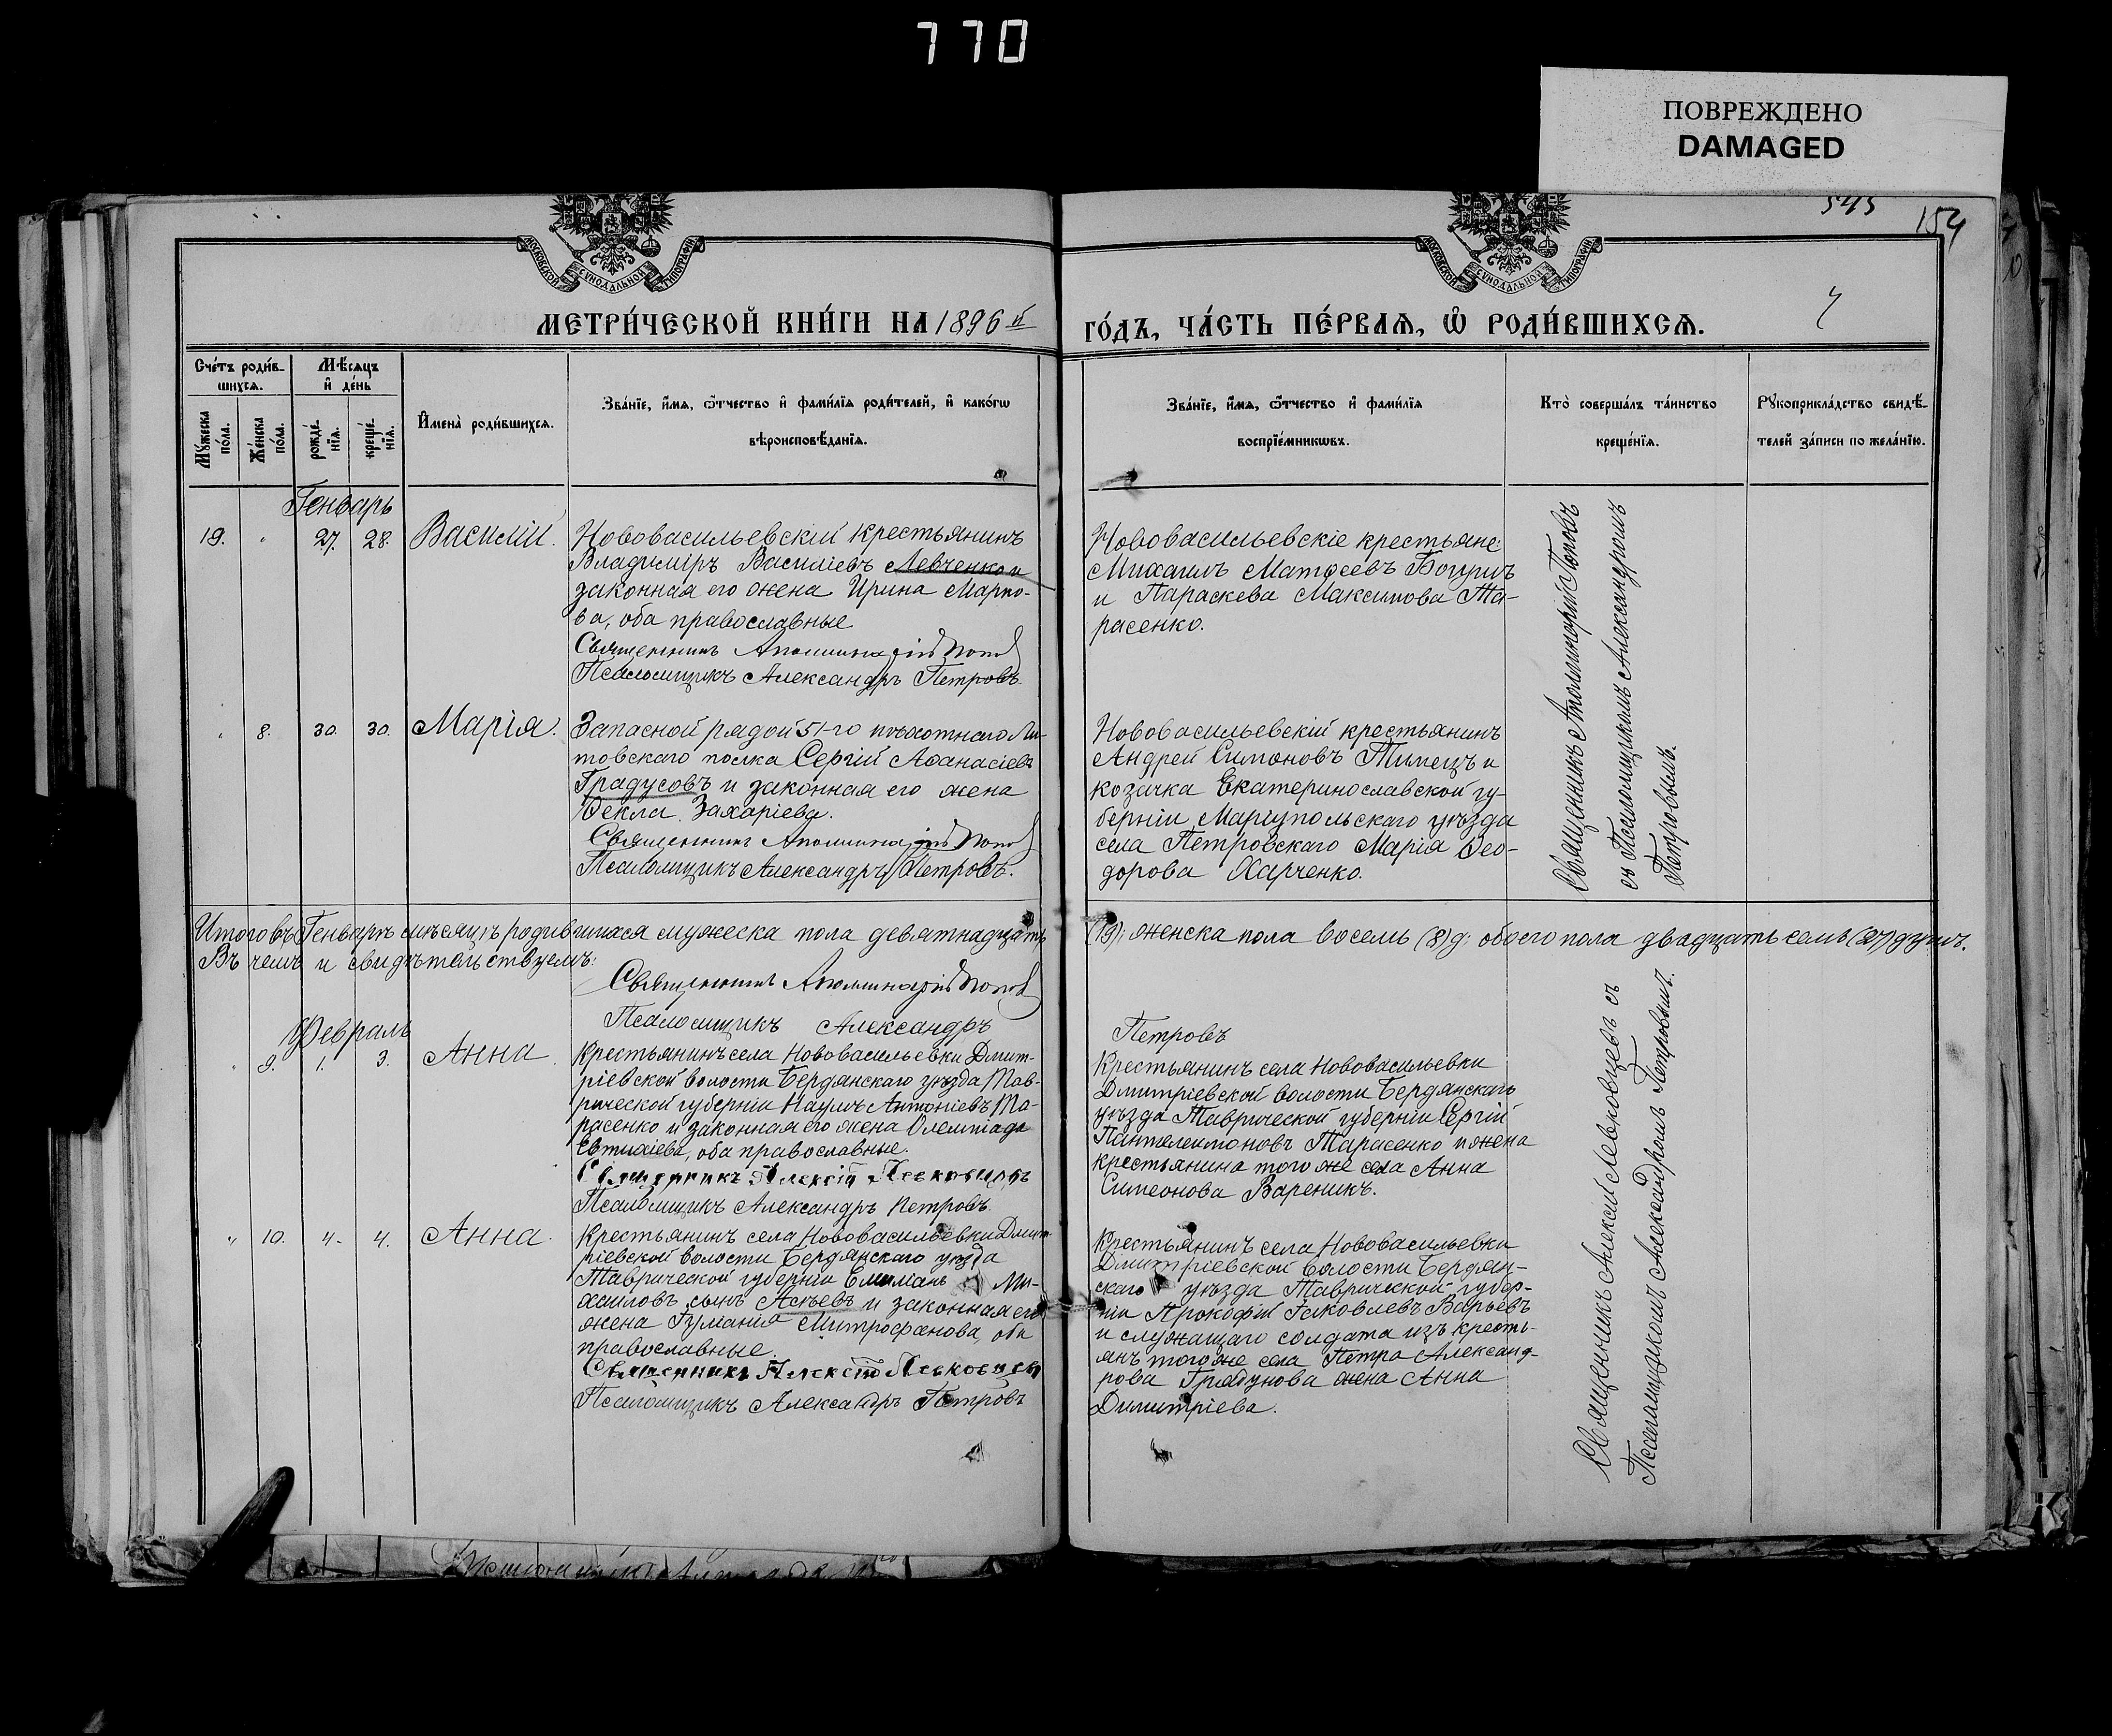 770
ПОВРЕЖДЕНО
DAMAGED
545
154
МОСКОВСКОЙ СѴНОДАЛЬНОЙ ТИПОГРАФІИ
МОСКОВСКОЙ СѴНОДАЛЬНОЙ ТИПОГРАФІИ
МЕТРИ́ЧЕСКОЙ КНИ́ГИ НА 1896 й
ГО́ДЪ, ЧА́СТЬ ПЕ́РВАѦ, Ѡ҆ РОДИ́ВШИХСѦ.
Сче́тъ роди́в-
шихсѧ.
Мѣ́сѧцъ
и҆ де́нь
Мꙋ́жеска
по́ла.
Же́нска
по́ла.
рожде́-
нїѧ.
креще́-
нїѧ.
И҆мена̀ роди́вшихсѧ.
Зва́нїе, и҆́мѧ, ѻ҆́тчество и҆ фами́лїѧ роди́телей, и҆ како́гѡ
вѣроисповѣ́данїѧ.
Зва́нїе, и҆́мѧ, ѻ҆́тчество и҆ фами́лїѧ
воспрїе́мникѡвъ.
Кто̀ соверша́лъ та́инство
креще́нїѧ.
Рꙋкоприкла́дство свидѣ́-
телей за́писи по жела́нїю.
Генварь
19. " 27. 28. Василій.
Нововасильевскій крестьянинъ
Владиміръ Василіевъ Левченко и
законная его жена Ирина Марко-
ва, оба православные
Священникъ Аполлинарій Попов
Псаломщикъ Александръ Петровъ.
Нововасильевскіе крестьяне:
Михаилъ Матѳеевъ
и Параскева Максимова Та-
расенко.
Священникъ Аполлинарій Поповъ
съ Псаломщикомъ Александромъ
Петровымъ.
" 8. 30. 30. Марія.
Запасной рядой 51-го пѣхотнаго Ли-
товскаго полка Сергій Аѳанасіевъ
Градусовъ и законная его жена
Ѳекла Захаріева.
Священникъ Аполлинарій Попов
Псаломщикъ Александръ Петровъ.
Нововасильевскій крестьянинъ
Андрей Симоновъ и
козачка Екатеринославской гу-
берніи Маріупольскаго уѣзда
села Петровскаго Марія Ѳео-
дорова Харченко.
Итого въ Генварѣ мѣсяцѣ родившихся мужеска пола девятнадцать (19); женска пола восемь (8) д; обоего пола двадцать семь (27) душъ.
Въ чемъ и свидѣтельствуемъ:
Священникъ Аполлинарій Попов
Псаломщикъ Александръ Петровъ
Февраль
" 9. 1. 3. Анна.
Крестьянинъ села Нововасильевки Дмит-
ріевской волости Бердянскаго уѣзда Тав-
рической губерніи Наумъ Антоніевъ Та-
расенко и законная его жена Олемпіада
Евтихіева, оба православные.
Священникъ Алексій
Псаломщикъ Александръ Петровъ.
Крестьянинъ села Нововасильевки
Дмитріевской волости Бердянскаго
уѣзда Таврической губерніи Сергій
Пантелеимоновъ Тарасенко и жена
крестьянина того же села Анна
Симеонова Вареникъ.
Священникъ Алексій съ
Псаломщикомъ Александромъ Петровымъ.
" 10. 4. 4. Анна.
Крестьянинъ села Нововасильевки Дмит-
ріевской волости Бердянскаго уѣзда
Таврической губерніи Емиліанъ Ми-
хаиловъ сынъ Асѣевъ и законная его
жена Іуліанія Митрофанова, оба
православные.
Священникъ Алексій
Псаломщикъ Александръ Петровъ
Крестьянинъ села Нововасильевки
Дмитріевской волости Бердян-
скаго уѣзда Таврической губер-
ніи Прокофій Іаковлевъ Варьевъ
и служащаго солдата изъ кресть-
янъ того же села Петра Александ-
рова Грядунова жена Анна
Димитріева.